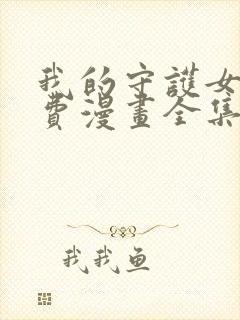 我的守護女
費漫畫全集
我我魚